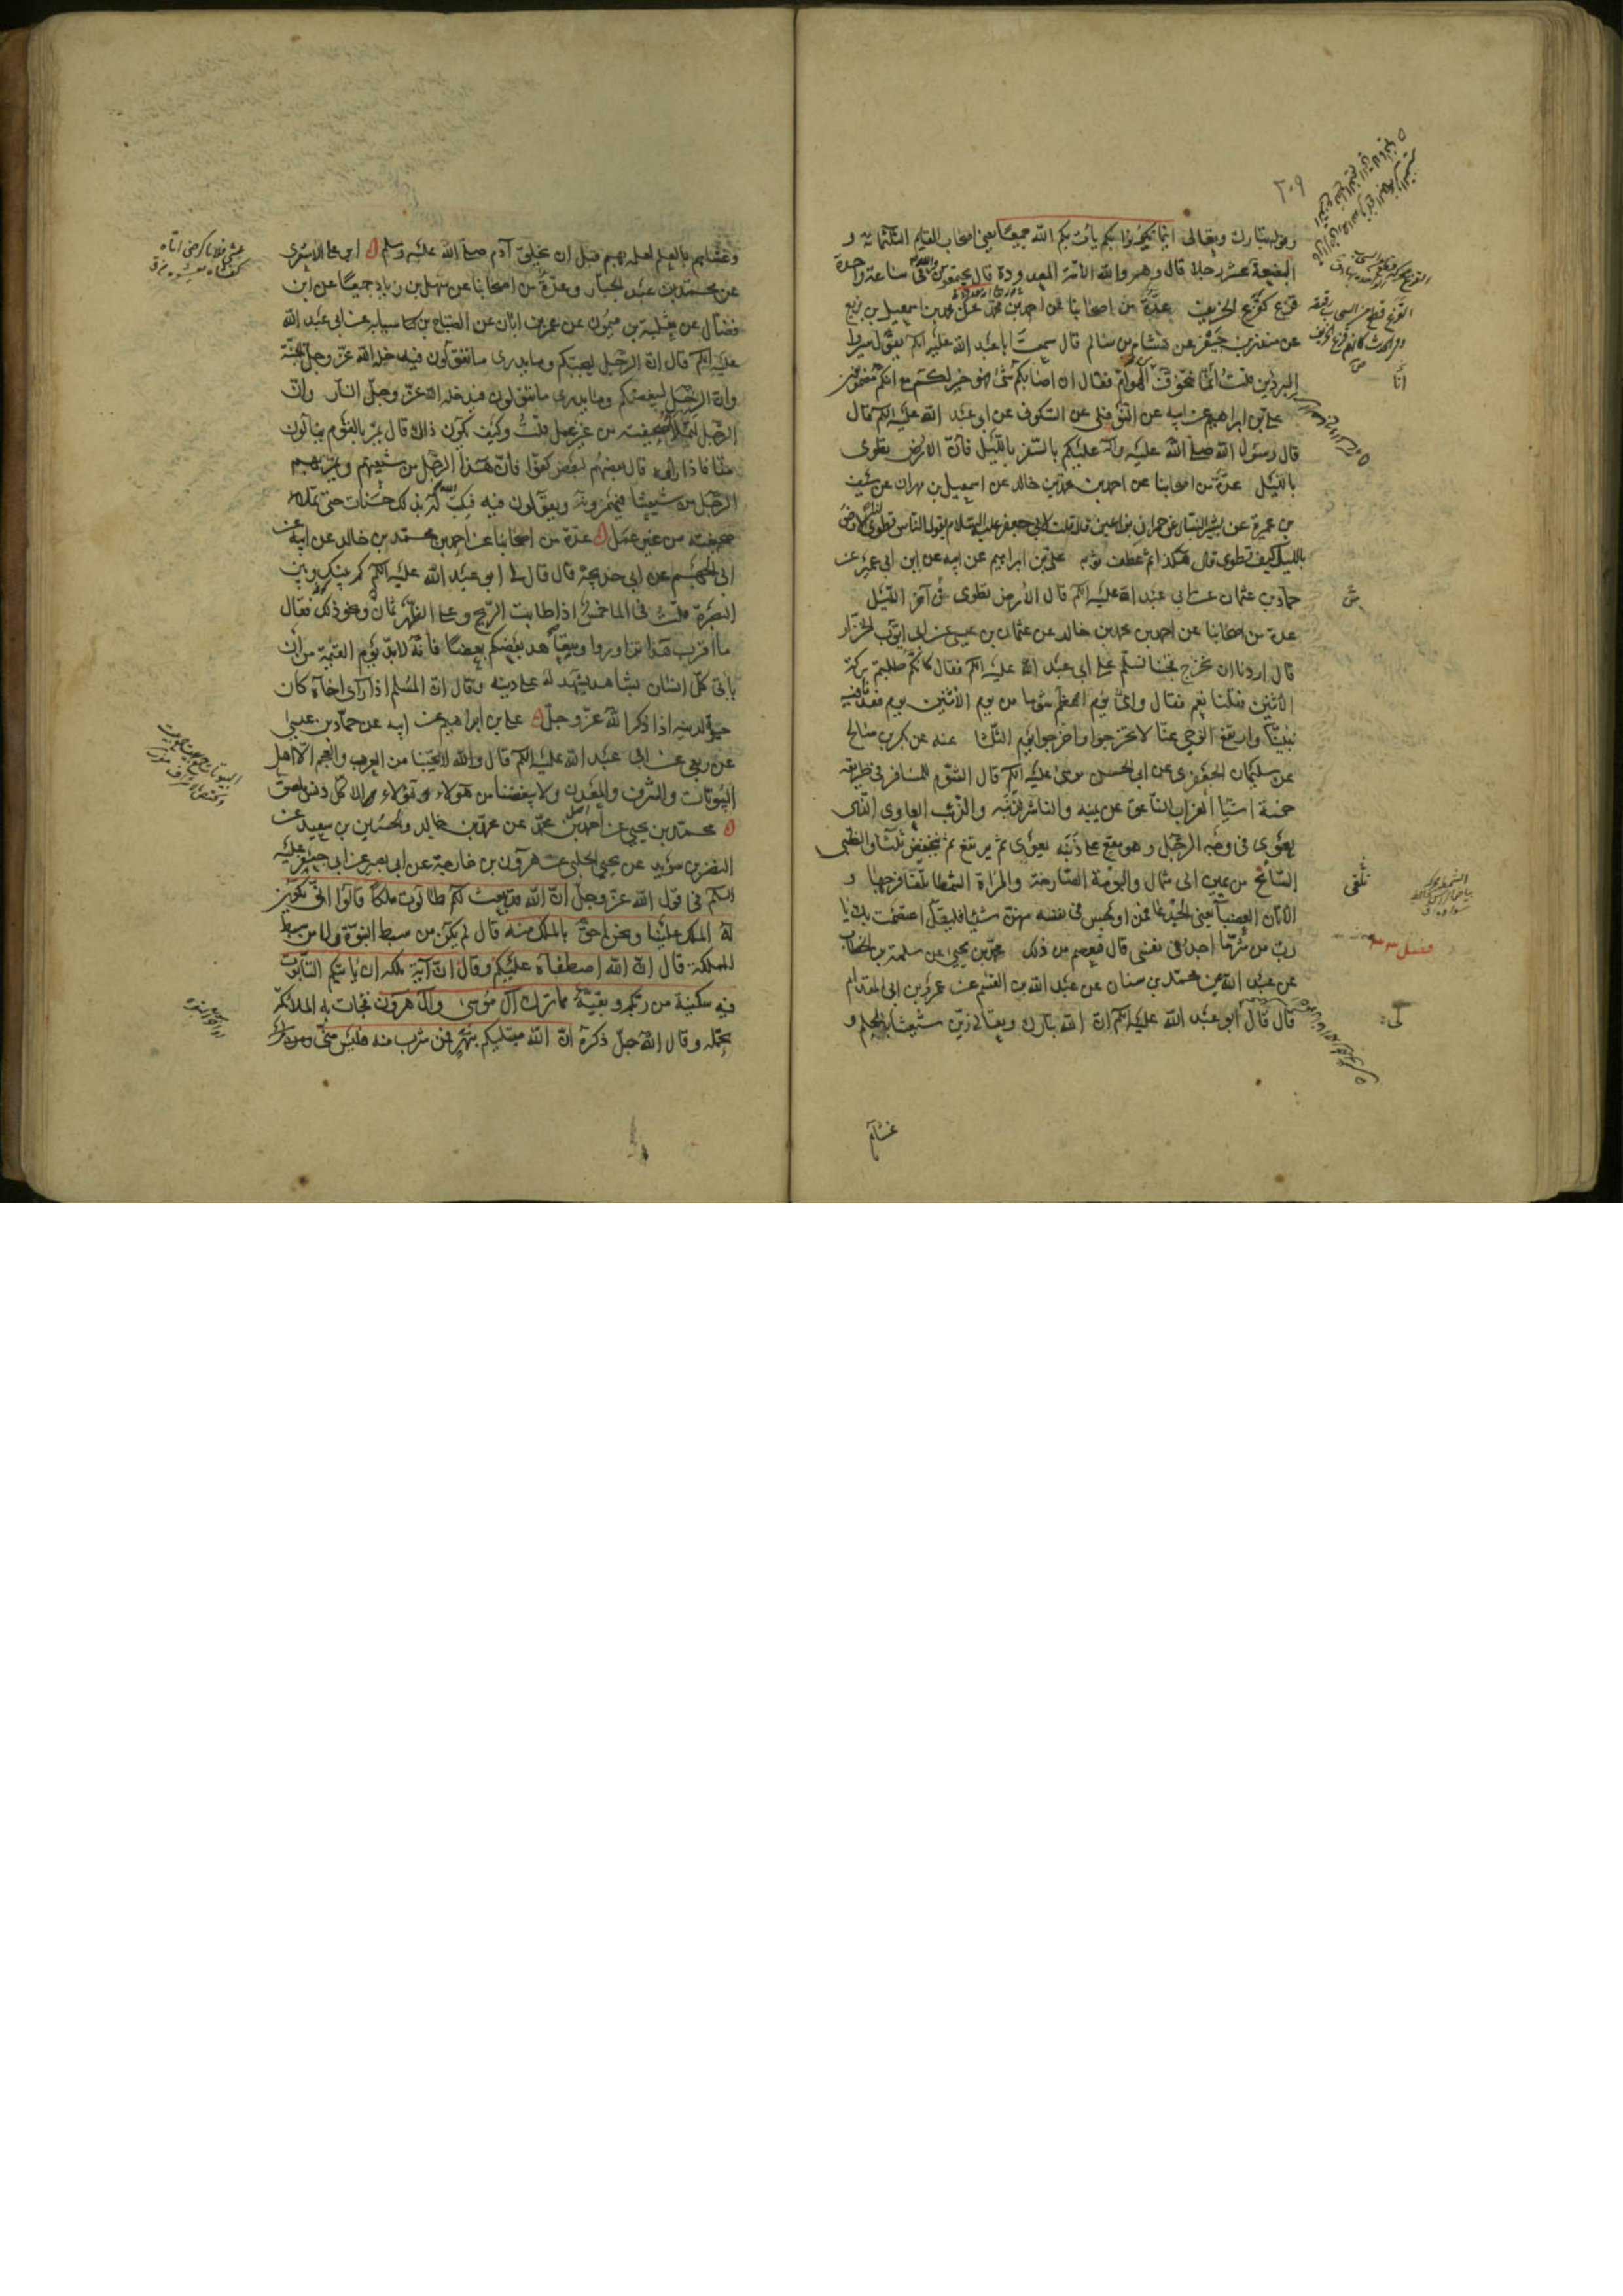 ٢٠٩
وقوله تبارك وتعالى اينما تكونوا يأت بكم الله جميعا يعني اصحاب القايم الثلثمائة و
البضعة عشر رجلا قال وهم والله الامة المعدودة قال يجتمعون والله في ساعة واحدة
قزع كقزع الخريف عدة من اصحابنا عن احمد بن محمد عن محمد بن اسمعيل بن بزيع
عن منذر بن جيفر عن هشام بن سالم قال سمعت ابا عبد الله عليه السلم يقول سيروا
البردين قلت انا نتخوف الهوام فقال ان اصابكم شئ فهو خير لكم مع انكم مضمونون
علي بن ابراهيم عن ابيه عن النوفلي عن السكوني عن ابي عبد الله عليه السلم قال
قال رسول الله صلى الله عليه وآله عليكم بالسفر بالليل فان الارض تطوى
بالليل عدة من اصحابنا عن احمد بن محمد بن خالد عن اسمعيل بن مهران عن سيف
بن عميرة عن بشير النبال عن حمران بن اعين قال قلت لابي جعفر عليه السلام يقول الناس تطوى لنا الارض
بالليل كيف تطوى قال هكذا ثم عطف ثوبه علي بن ابراهيم عن ابيه عن ابن ابي عمير عن
حماد بن عثمان عن ابي عبد الله عليه السلم قال الارض تطوى في آخر الليل
عدة من اصحابنا عن احمد بن محمد بن خالد عن عثمان بن عيسى عن ابي ايوب الخزاز
قال اردنا ان نخرج فجئنا نسلم على ابي عبد الله عليه السلم فقال كانكم طلبتم بركة
الاثنين فقلنا نعم فقال واي يوم اعظم شوما من يوم الاثنين يوم فقدنا فيه
نبينا وارتفع الوحي عنا لا تخرجوا واخرجوا يوم الثلثا عنه عن بكر بن صالح
عن سليمان الجعفري عن ابي الحسن موسى عليه السلم قال الشوم للمسافر في طريقه
خمسة اشيا الغراب الناعق عن يمينه والناشر لذنبه والذئب العاوي الذي
يعوي في وجه الرجل وهو مقع على ذنبه يعوي ثم يرتفع ثم ينخفض ثلثا والظبي
السانح من يمين الى شمال والبومة الصارخة والمراة الشمطا تلقا فرجها و
الاتان العضبا يعني الجدعا فمن اوجس في نفسه منهن شيئا فليقل اعتصمت بك يا
رب من شر ما اجد في نفسي قال فيعصم من ذلك محمد بن يحيى عن سلمة بن الخطاب
عن عبد الله عن محمد بن سنان عن عبد الله بن القسم عن عمرو بن ابي المقدام
قال قال ابو عبد الله عليه السلم ان الله تبارك وتعالى زين شيعتنا بالحلم و
غشاهم
وغشاهم بالعلم لعلمه بهم قبل ان يخلق آدم صلى الله عليه وسلم ابو علي الاشعري
عن محمد بن عبد الجبار وعدة من اصحابنا عن سهل بن زياد جميعا عن ابن
فضال عن ثعلبة بن ميمون عن عمر بن ابان عن الصباح بن سيابه عن ابي عبد الله
عليه السلم قال ان الرجل ليحبكم وما يدري ما تقولون فيدخله الله عز وجل الجنة
وان الرجل ليبغضكم وما يدري ما تقولون فيدخله الله عز وجل النار وان
الرجل لتملأ صحيفته من غير عمل قلت وكيف يكون ذلك قال يمر بالقوم ينالون
منا فاذا راوه قال بعضهم لبعض كفوا فان هذا الرجل من شيعتهم ويمر بهم
الرجل من شيعتنا فيهمزونه ويقولون فيه فيكتب الله له بذلك حسنات حتى تملأ
صحيفته من غير عمل عدة من اصحابنا عن احمد بن محمد بن خالد عن ابيه عن
ابي الجهم عن ابي خديجة قال قال لي ابو عبد الله عليه السلم كم بينك وبين
البصرة قلت في الماء خمس اذا طابت الريح وعلى الظهر ثمان ونحو ذلك فقال
ما اقرب هذا تزاوروا ويتعاهد بعضكم بعضا فانه لابد يوم القيمة من ان
ياتي كل انسان بشاهد يشهد له على دينه وقال ان المسلم اذا راى اخاه كان
حيوة لدينه اذا ذكر الله عز وجل علي بن ابراهيم عن ابيه عن حماد بن عيسى
عن ربعي عن ابي عبد الله عليه السلم قال والله لا يحبنا من العرب والعجم الا اهل
البيوتات والشرف والمعدن ولا يبغضنا من هؤلاء وهؤلاء الا كل دنس ملصق
محمد بن يحيى عن احمد بن محمد عن محمد بن خالد والحسين بن سعيد عن
النضر بن سويد عن يحيى الحلبي عن هرون بن خارجة عن ابي بصير عن ابي جعفر عليه
السلم في قول الله عز وجل ان الله قد بعث لكم طالوت ملكا قالوا انى يكون
له الملك علينا ونحن احق بالملك منه قال لم يكن من سبط النبوة ولا من سبط
المملكة قال ان الله اصطفاه عليكم وقال ان آية ملكه ان ياتيكم التابوت
فيه سكينة من ربكم وبقية مما ترك آل موسى وآل هرون فجات به الملائكة
تحمله وقال الله جل ذكره ان الله مبتليكم بنهر فمن شرب منه فليس مني